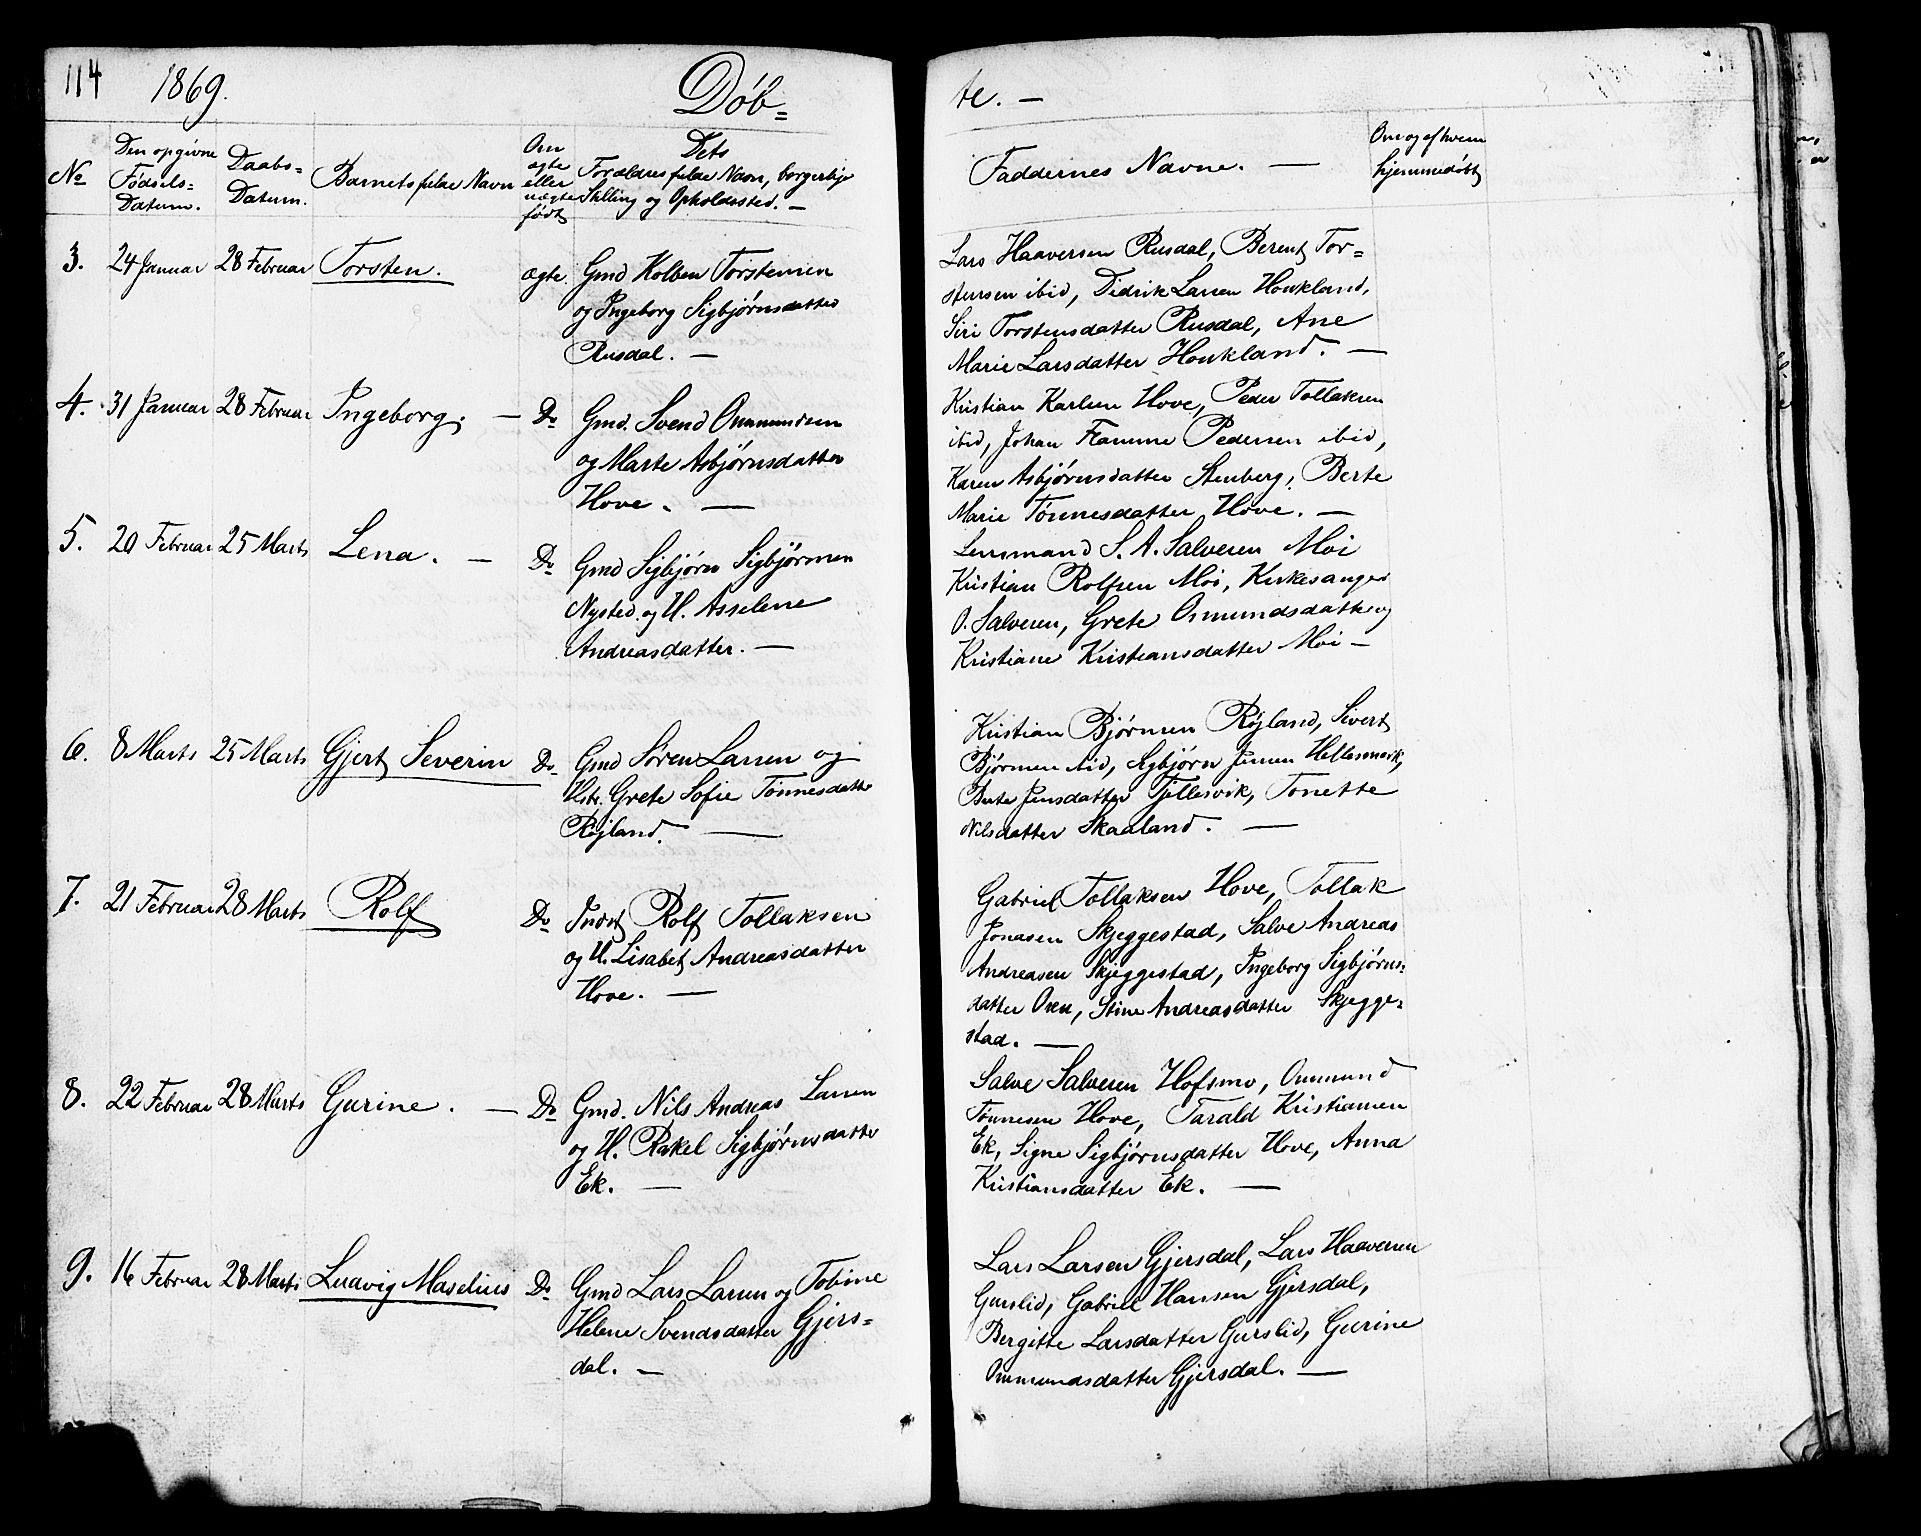 114 1869. Døb= te. —
No
Den opgivne Fødsels= Datum.
Daabs= Datum.
Barnets fulde Navn
Om ægte eller uægte født
Dets Forældres fulde Navn, borgerlige Stilling og Opholdssted. —
Faddernes Navne. —
Om og af hvem hjemmedøbt
3. 24 Januar 28 Februar Torsten. ægte. Gmd Kolben Torstensen
og Ingeborg Sigbjørnsdatter
Rusdal. —
Lars Haaversen Rusdal, Berent Tor=
stensen ibid, Didrik Larsen Houkland,
Siri Torstensdatter Rusdal, Ane
Marie Larsdatter Houkland. —
4. 31 Januar 28 Februar Ingeborg. — Do Gmd. Svend Ommundsen
og Marte Asbjørnsdatter
Hove. —
Kristian Karlsen Hove, Peder Tollaksen
ibid, Johan Flamme Pedersen ibid,
Karen Asbjørnsdatter Stenberg, Berte
Marie Tønnesdatter Hove. —
5. 20 Februar 25 Marts Lena. — Do Gmd Sigbjørn Sigbjørnsen
Nysted og H. Asselene
Andreasdatter. —
Lensmand S. A. Salvesen Moi
Kristian Rolfsen Moi, Kirkesanger
O. Salvesen, Grete Osmundsdatter og
Kristiane Kristiansdatter Moi —
6. 8 Marts 25 Marts Gjert Severin Do Gmd Søren Larsen og
Hstr. Grete Sofie Tønnesdatter
Røjland. —
Kristian Bjørnsen Røjland, Sivert
Bjørnsen ibid, Sigbjørn Jensen Hellesmark,
Berte Jensdatter Tjellesvik, Tonette
Nilsdatter Skaaland. —
7. 21 Februar 28 Marts Rolf Do Indst Rolf Tollaksen
og H. Lisabet Andreasdatter
Hove. —
Gabriel Tollaksen Hove, Tollak
Jonasen Skjeggestad, Salve Andreas
Andreasen Skjeggestad, Ingeborg Sigbjørns=
datter Osen, Stine Andreasdatter Skjegge=
stad. —
8. 22 Februar 28 Marts Gurine. — Do Gmd. Nils Andreas Larsen
og H. Rakel Sigbjørnsdatter
Ek. —
Salve Salvesen Hofsmo, Ommund
Tønnesen Hove, Tarald Kristiansen
Ek, Signe Sigbjørnsdatter Hove, Anna
Kristiansdatter Ek. —
9. 16 Februar 28 Marts Ludvig Maselius Do Gmd Lars Larsen og Tobine
Helene Svendsdatter Gjers=
dal. —
Lars Larsen Gjersdal, Lars Haaversen
Gurslid, Gabriel Hansen Gjersdal,
Bergitte Larsdatter Gurslid, Gurine
Ommundsdatter Gjersdal. —